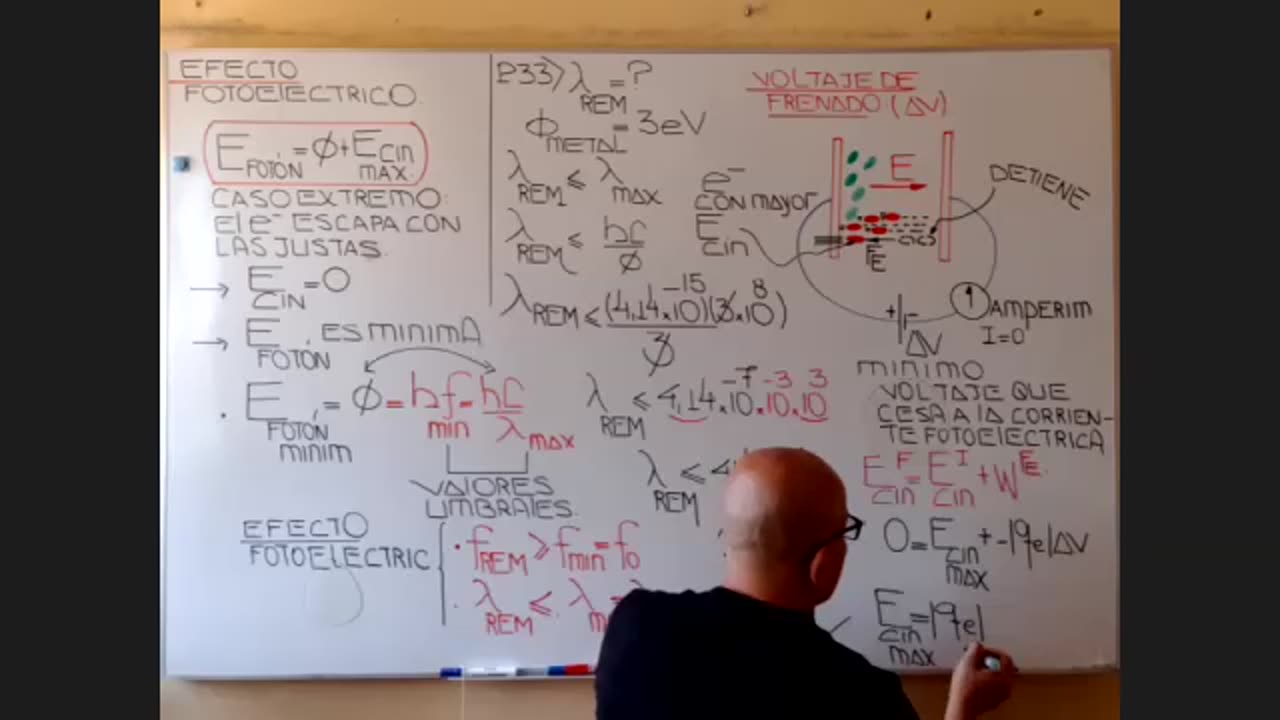 EFECTO
FOTOELECTRICO.
E FOTÓN = ϕ + E CIN MAX.
CASO EXTREMO:
El e⁻ ESCAPA CON
LAS JUSTAS.
→ E CIN = 0
→ E FOTÓN, ES MINIMA
. E FOTON MINIM = ϕ = hf min = hc/λ MAX
VALORES
UMBRALES.
EFECTO
FOTOELECTRIC
. f REM ≥ f min = f0
. λ REM ≤ λ
P33> λ REM = ?
ϕ METAL = 3eV
λ REM ≤ λ MAX
λ REM ≤ hc/ϕ
λ REM ≤ (4,14x10⁻¹⁵)(3x10⁸)/3
λ REM ≤ 4,14x10⁻⁷.10⁻³.10³
λ REM ≤
VOLTAJE DE
FRENADO: (ΔV)
E
DETIENE
e⁻
CON MAYOR
E CIN
FE
+ -
ΔV
1 AMPERIM
I=0
MINIMO
VOLTAJE QUE
CESA A LA CORRIEN-
TE FOTOELECTRICA
E CIN F = E CIN I + W FE
0 = E CIN MAX + -|qe|ΔV
E CIN MAX = |qe|